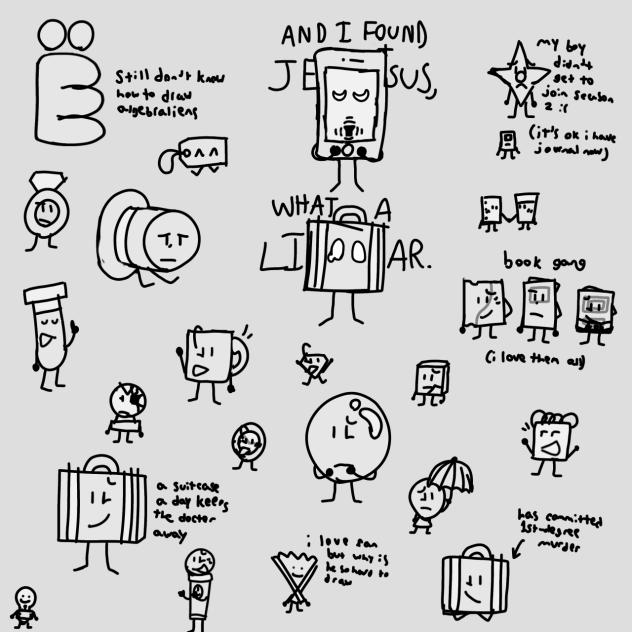 AND I FOUND
JESUS,
Still don't know
how to draw
algebraliens
my boy
didn't
get to
join season
2 :(
(it's ok i have
journal now)
WHAT A
LIAR.
book gang
(i love them all)
a suitcase
a day keeps
the doctor
away
i love fan
but why is
he so hard to
draw
has committed
1st degree
murder